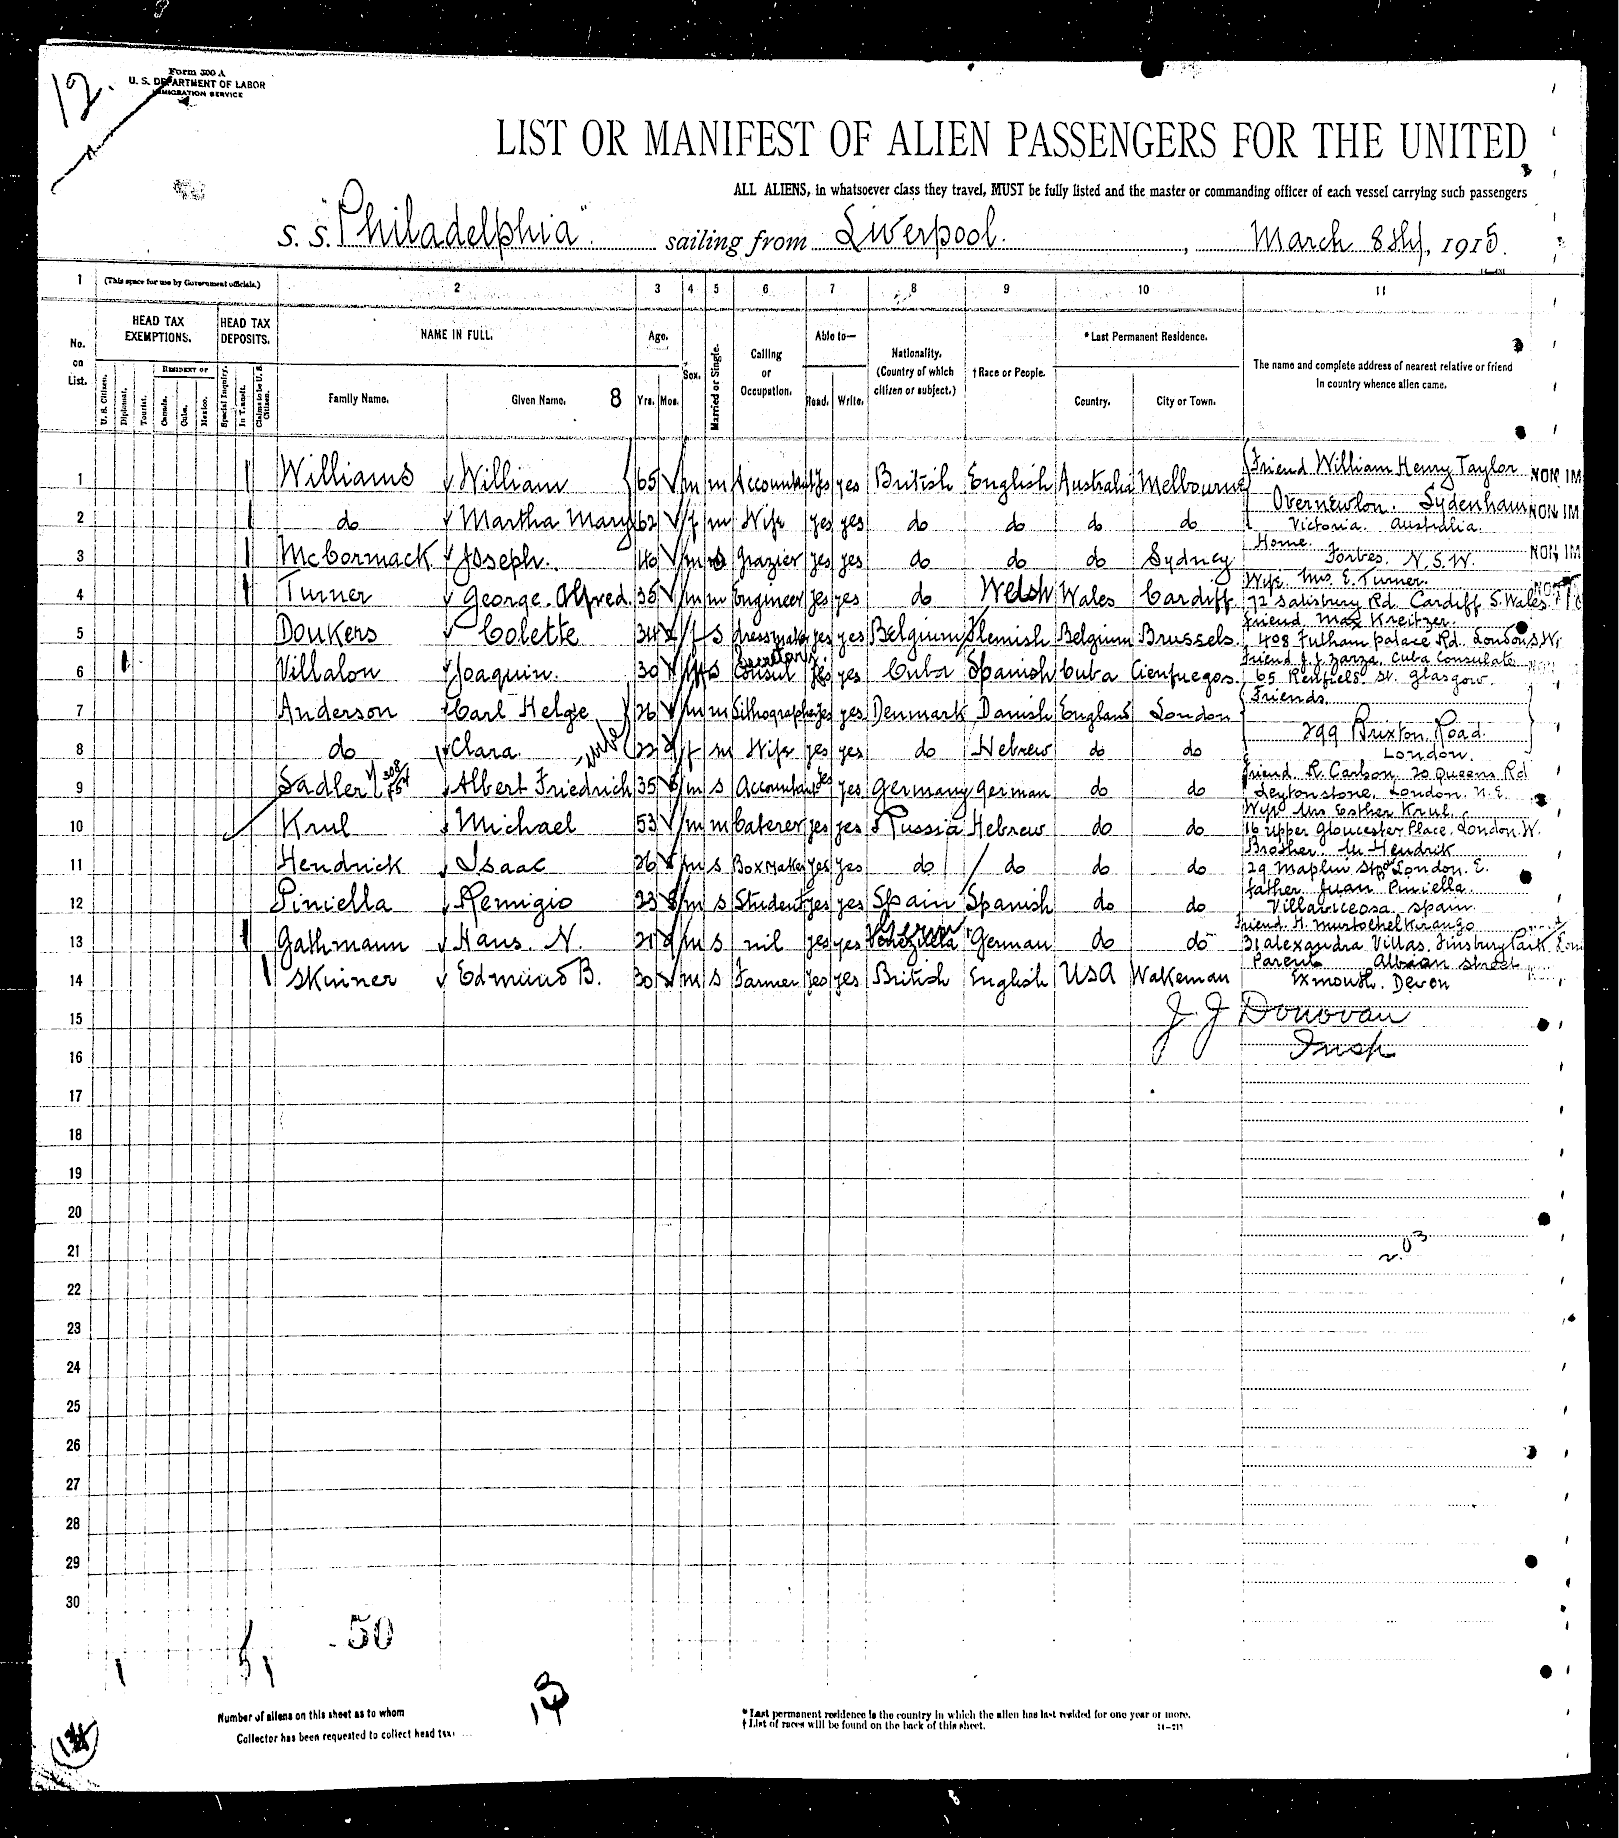 12.
Form 500 A
U. S. DEPARTMENT OF LABOR
IMMIGRATION SERVICE
LIST OR MANIFEST OF ALIEN PASSENGERS FOR THE UNITED
ALL ALIENS, in whatsoever class they travel, MUST be fully listed and the master or commanding officer of each vessel carrying such passengers
S. S. "Philadelphia". sailing from Liverpool. , March 8th, 1915.
1 (This space for use by Government officials.) 2 3 4 5 6 7 8 9 10 11
No. on List. HEAD TAX EXEMPTIONS. HEAD TAX DEPOSITS. NAME IN FULL. Age. Sex. Married or Single. Calling or Occupation. Able to— Nationality. (Country of which citizen or subject.) † Race or People. * Last Permanent Residence. The name and complete address of nearest relative or friend in country whence alien came.
U. S. Citizen. Diplomat. Tourist. RESIDENT OF Canada. Cuba. Mexico. Special Inquiry. In Transit. Claims to be U. S. Citizen. Family Name. Given Name. 8 Yrs. Mos. Read. Write. Country. City or Town.
1 Williams William 65 m m Accountant yes yes British English Australia Melbourne Friend William Henry Taylor NON IM
2 do Martha Mary 62 f m Wife yes yes do do do do Overnewton. Sydenham NON IM
Victoria. Australia.
3 McCormack Joseph. 40 m s Grazier yes yes do do do Sydney Home. Forbes. N.S.W. NON IM
4 Turner George Alfred. 35 m m Engineer yes yes do Welsh Wales Cardiff Wife. Mrs. E. Turner.
72 Salisbury Rd. Cardiff S. Wales.
5 Doukers Colette 34 f s dressmaker yes yes Belgium Flemish Belgium Brussels. friend Max Kreitzer.
408 Fulham palace Rd. London S.W.
6 Villalon Joaquin. 30 m s Secretary Consul yes yes Cuba Spanish Cuba Cienfuegos. friend J. J. Zarza, Cuba Consulate
65 Renfield. St. Glasgow.
7 Anderson Carl Helge 26 m m Lithographer yes yes Denmark Danish England London Friends.
299 Brixton Road.
8 do Clara. wife 22 f m Wife yes yes do Hebrew do do London.
9 Sadler Albert Friedrich 35 m s Accountant yes yes Germany German do do friend R. Carlson. 20 Queens Rd
Leytonstone. London. N.E.
10 Krul Michael 53 m m Caterer yes yes Russia Hebrew do do Wife Mrs Esther Krul.
16 upper Gloucester Place. London. W.
11 Hendrick Isaac 26 m s Box Maker yes yes do do do do Brother. Mr Hendrik
29 Maplin St. London. E.
12 Piniella Remigio 23 m s Student yes yes Spain Spanish do do father Juan Piniella.
Villaviceosa. Spain.
13 Gathmann Hans. N. 21 m s nil yes yes Venezuela German do do
31 Alexandra Villas. Finsbury Park. Lon
14 Skinner Edmund B. 30 m s Farmer yes yes British English USA Wakeman Parent Albion Street
Exmouth. Devon
15 J J Donovan
16 Insp
17
18
19
20
21 203
22
23
24
25
26
27
28
29
30
50
Number of aliens on this sheet as to whom
Collector has been requested to collect head tax
* Last permanent residence is the country in which the alien has last resided for one year or more.
† List of races will be found on the back of this sheet.